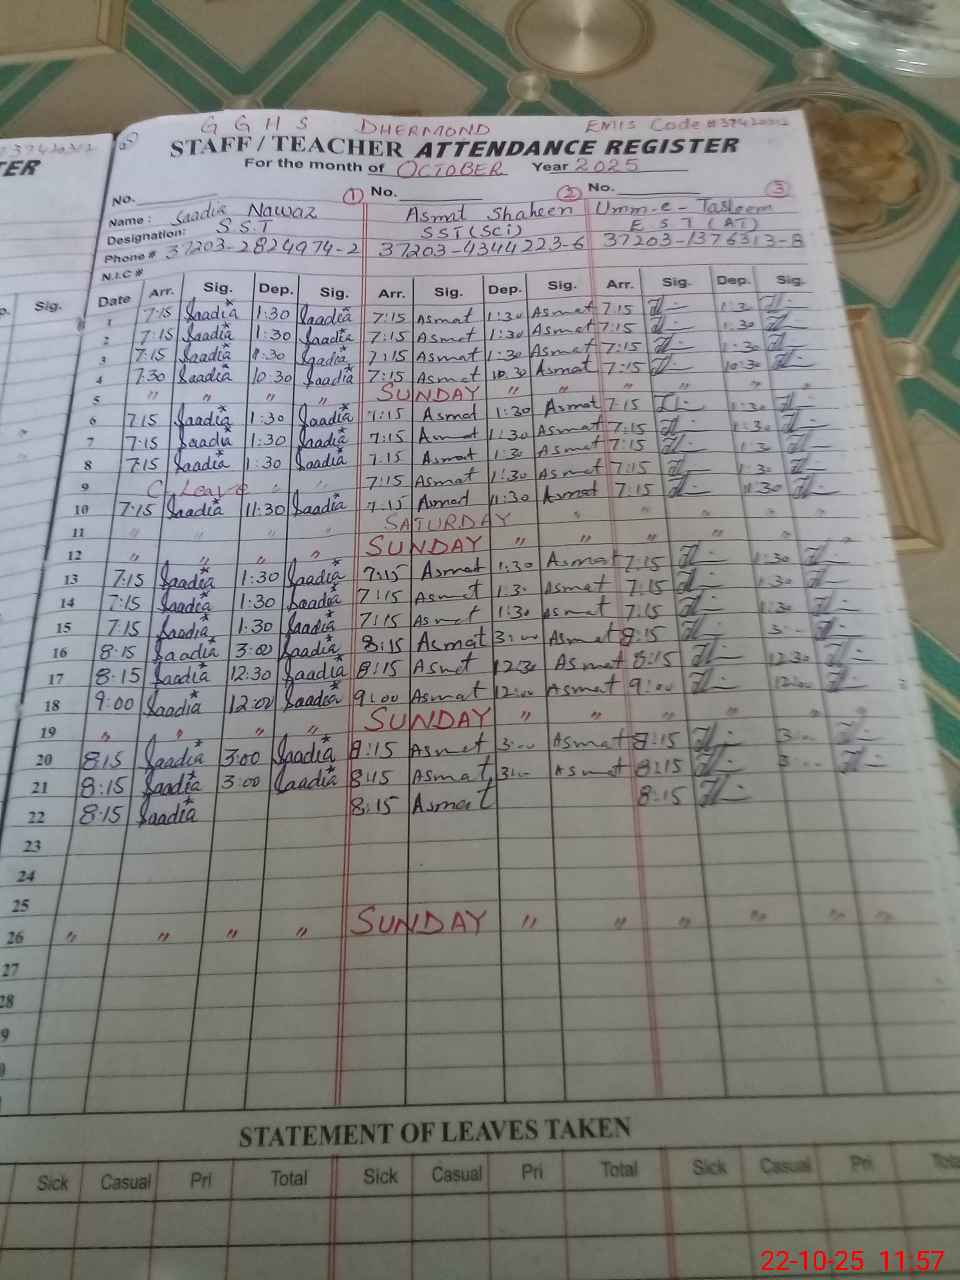 37420312
G G H S DHERMOND EMIS Code # 37420312
TER STAFF/TEACHER ATTENDANCE REGISTER
For the month of OCTOBER Year 2025
No. 1 No. 2 No. 3
Name: Saadia Nawaz Asmat Shaheen Umm-e-Tasleem
Designation: S S T SST(Sci) E S T (AT)
Phone # 37203-2824974-2 37203-4344223-6 37203-1376313-8
N.I.C #
p. Sig. Date Arr. Sig. Dep. Sig. Arr. Sig. Dep. Sig. Arr. Sig. Dep. Sig.
1 7:15 Saadia 1:30 Saadia 7:15 Asmat 1:30 Asmat 7:15 1:30
2 7:15 Saadia 1:30 Saadia 7:15 Asmat 1:30 Asmat 7:15 1:30
3 7:15 Saadia 1:30 Saadia 7:15 Asmat 1:30 Asmat 7:15 1:30
4 7:30 Saadia 10:30 Saadia 7:15 Asmat 10:30 Asmat 7:15 10:30
5 " " " " SUNDAY " " " " " "
6 7:15 Saadia 1:30 Saadia 7:15 Asmat 1:30 Asmat 7:15 1:30
7 7:15 Saadia 1:30 Saadia 7:15 Asmat 1:30 Asmat 7:15 1:30
8 7:15 Saadia 1:30 Saadia 7:15 Asmat 1:30 Asmat 7:15 1:30
9 C Leave " " 7:15 Asmat 1:30 Asmat 7:15 1:30
10 7:15 Saadia 11:30 Saadia 7:15 Asmat 11:30 Asmat 7:15 11:30
11 " " " " SATURDAY " " " " "
12 " " " " SUNDAY " " " " " "
13 7:15 Saadia 1:30 Saadia 7:15 Asmat 1:30 Asmat 7:15 1:30
14 7:15 Saadia 1:30 Saadia 7:15 Asmat 1:30 Asmat 7:15 1:30
15 7:15 Saadia 1:30 Saadia 7:15 Asmat 1:30 Asmat 7:15 1:30
16 8:15 Saadia 3:00 Saadia 8:15 Asmat 3:00 Asmat 8:15 3:00
17 8:15 Saadia 12:30 Saadia 8:15 Asmat 12:30 Asmat 8:15 12:30
18 9:00 Saadia 12:00 Saadia 9:00 Asmat 12:00 Asmat 9:00 12:00
19 " " " " SUNDAY " " " " " "
20 8:15 Saadia 3:00 Saadia 8:15 Asmat 3:00 Asmat 8:15 3:00
21 8:15 Saadia 3:00 Saadia 8:15 Asmat 3:00 Asmat 8:15 3:00
22 8:15 Saadia 8:15 Asmat 8:15
23
24
25
26 " " " " SUNDAY " " " " " "
27
28
9
STATEMENT OF LEAVES TAKEN
Sick Casual Pri Total Sick Casual Pri Total Sick Casual Pri Tota
22-10-25 11:57